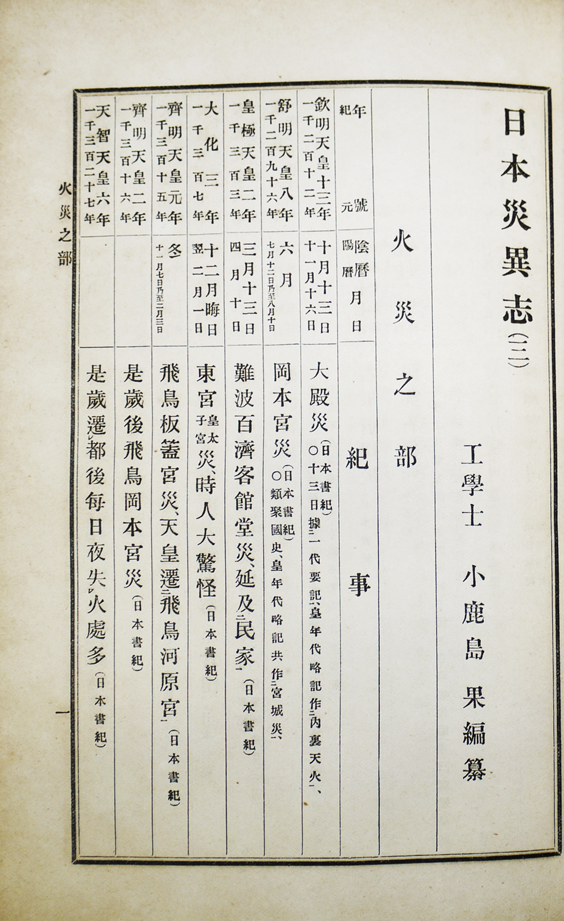 日本災異志(二)
工學士 小鹿島 果編纂
火災之部
年號 陰曆月日 紀事
紀元 陽曆
欽明天皇十三年 十月十三日 大殿災(日本書紀)〇十三日據ニ一代要記、皇年代略記作ニ內裏天火一、
一千二百十二年 十一月十六日
舒明天皇八年 六月 岡本宮災(日本書紀)〇類聚國史、皇年代略記共作ニ宮城災一、
一千二百九十六年 七月十二日乃至八月十日
皇極天皇二年 三月十三日 難波百濟客館堂災、延及ニ民家一(日本書紀)
一千三百三年 四月十日
大化三年 十二月晦日 東宮皇太子宮災、時人大驚怪(日本書紀)
一千三百七年 翌二月一日
齊明天皇元年 冬 飛鳥板蓋宮災、天皇遷ニ飛鳥河原宮一(日本書紀)
一千三百十五年 十一月七日乃至二月三日
齊明天皇二年 是歲後飛鳥岡本宮災(日本書紀)
一千三百十六年
天智天皇六年 是歲遷レ都後每日夜失レ火處多(日本書紀)
一千三百二十七年
火災之部
一